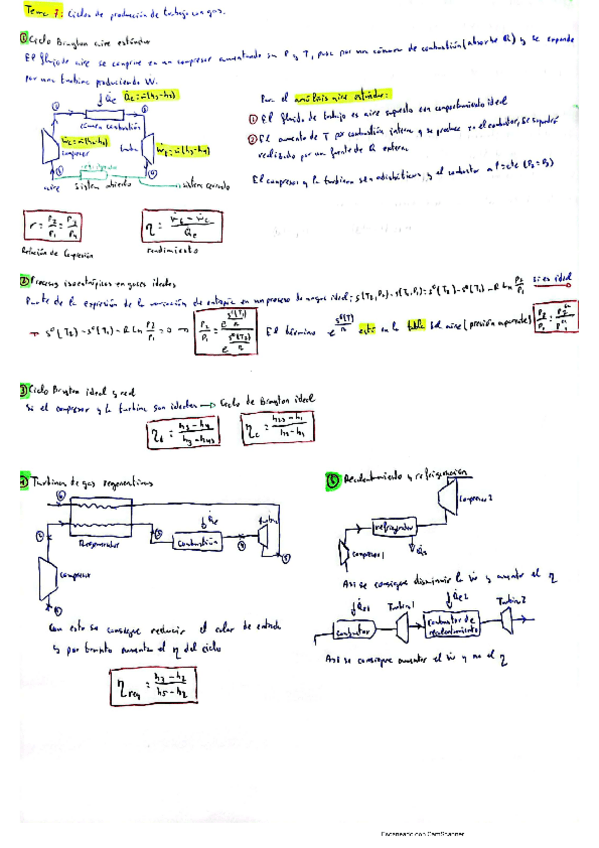 Tema 7: Ciclos de producción de trabajo con gas.
① Ciclo Brayton aire estándar
El flujo de aire se comprime en un compresor aumentando su P y T, pasa por una cámara de combustión (absorbe Q) y se expande
por una turbina produciendo W.
Q̇e Q̇e = ṁ(h3-h2)
cámara combustión
Ẇc = ṁ(h2-h1)
compresor
turbina
Ẇt = ṁ(h3-h4)
refrigerador
aire sistema abierto sistema cerrado
Para el análisis aire estándar:
① El fluido de trabajo es aire supuesto con comportamiento ideal
② El aumento de T por combustión interna y se produce en el combustor, se supondrá
realizado por una fuente de Q externa.
El compresor y la turbina son adiabáticos, y el combustor a P=cte (P2=P3)
r = P2/P1 = P3/P4
Relación de Compresión
η = (Ẇt - Ẇc)/Q̇e
rendimiento
② Procesos isoentrópicos en gases ideales
Parte de la expresión de la variación de entropía en un proceso de un gas ideal: s(T2,P2)-s(T1,P1)=s°(T2)-s°(T1)-R Ln P2/P1 si es ideal
→ s°(T2)-s°(T1)-R Ln P2/P1 = 0 → P2/P1 = e^(s°(T2)/R) / e^(s°(T1)/R) El término e^(s°(T)/R) está en la tabla del aire (presión aparente)
③ Ciclo Brayton ideal y real
Si el compresor y la turbina son ideales → Ciclo de Brayton ideal
ηt = (h3-h4)/(h3-h4s) ηc = (h2s-h1)/(h2-h1)
④ Turbinas de gas regenerativas
Regenerador
Q̇e
Combustión
turbina
compresor
Con esto se consigue reducir el calor de entrada
y por tanto aumentar el η del ciclo
⑤ Recalentamiento y refrigeración
Compresor 2
refrigerador
compresor 1
Así se consigue disminuir la ẇ y aumentar el η
Turbina 1
Q̇e2
Turbina 2
combustor
combustor de
recalentamiento
Así se consigue aumentar el ẇ y no el η
Escaneado con CamScanner